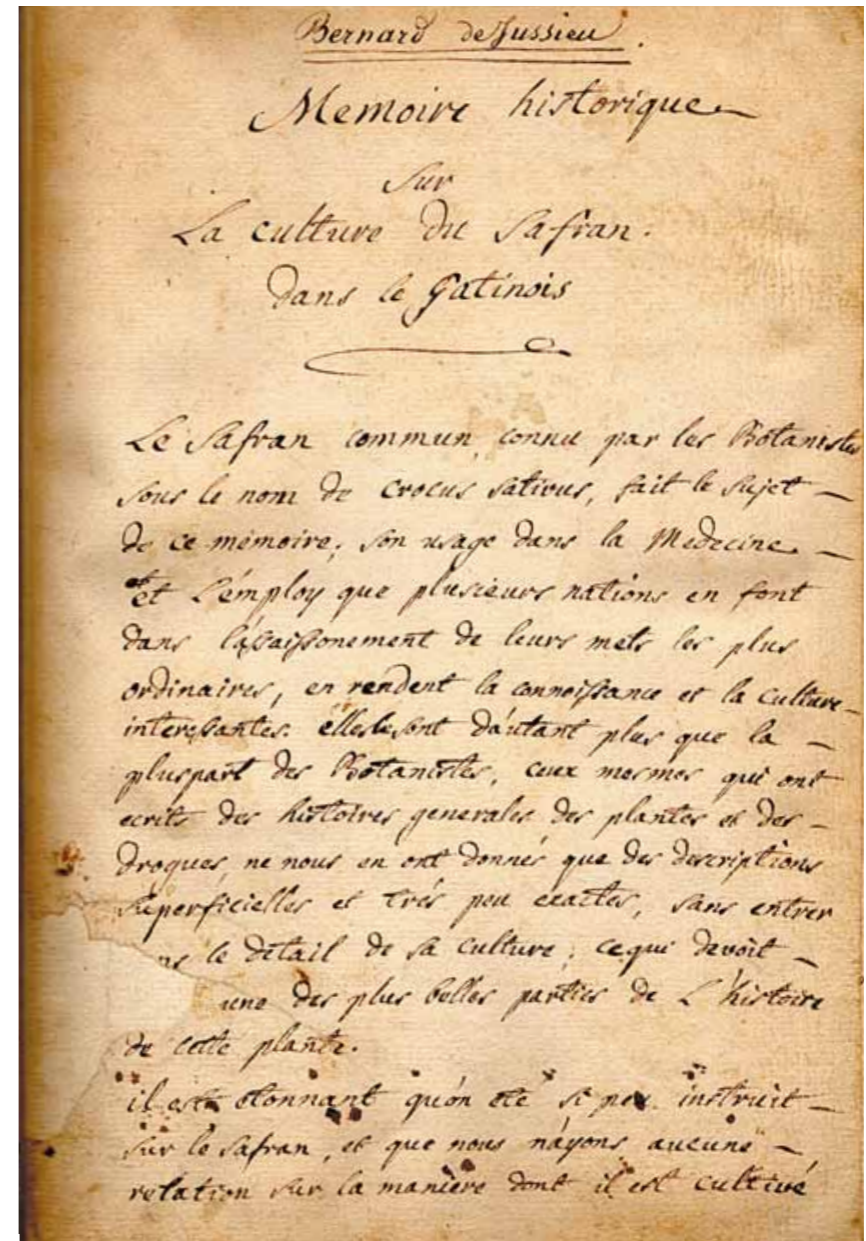 Bernard de Jussieu.
Memoire historique
sur
La culture du Safran.
dans le Gatinois
Le Safran commun, connu par les Botanistes
sous le nom de Crocus sativus, fait le sujet
de ce mémoire; son usage dans la Medecine
et L'employ que plusieurs nations en font
dans l'assaissonement de leurs mets les plus
ordinaires, en rendent la connoissance et la culture
interessantes. elles le sont d'autant plus que la
pluspart des Botanistes, ceux mesmes qui ont
ecrits des histoires generales des plantes et des
drogues, ne nous en ont donnés que des descriptions
superficielles et trés peu exactes, sans entrer
le détail de sa culture; ce qui devoit
une des plus belles parties de L'histoire
de cette plante.
il est etonnant qu'on eté si peu instruit
sur le safran, et que nous n'ayons aucune
relation sur la manière dont il est cultivé